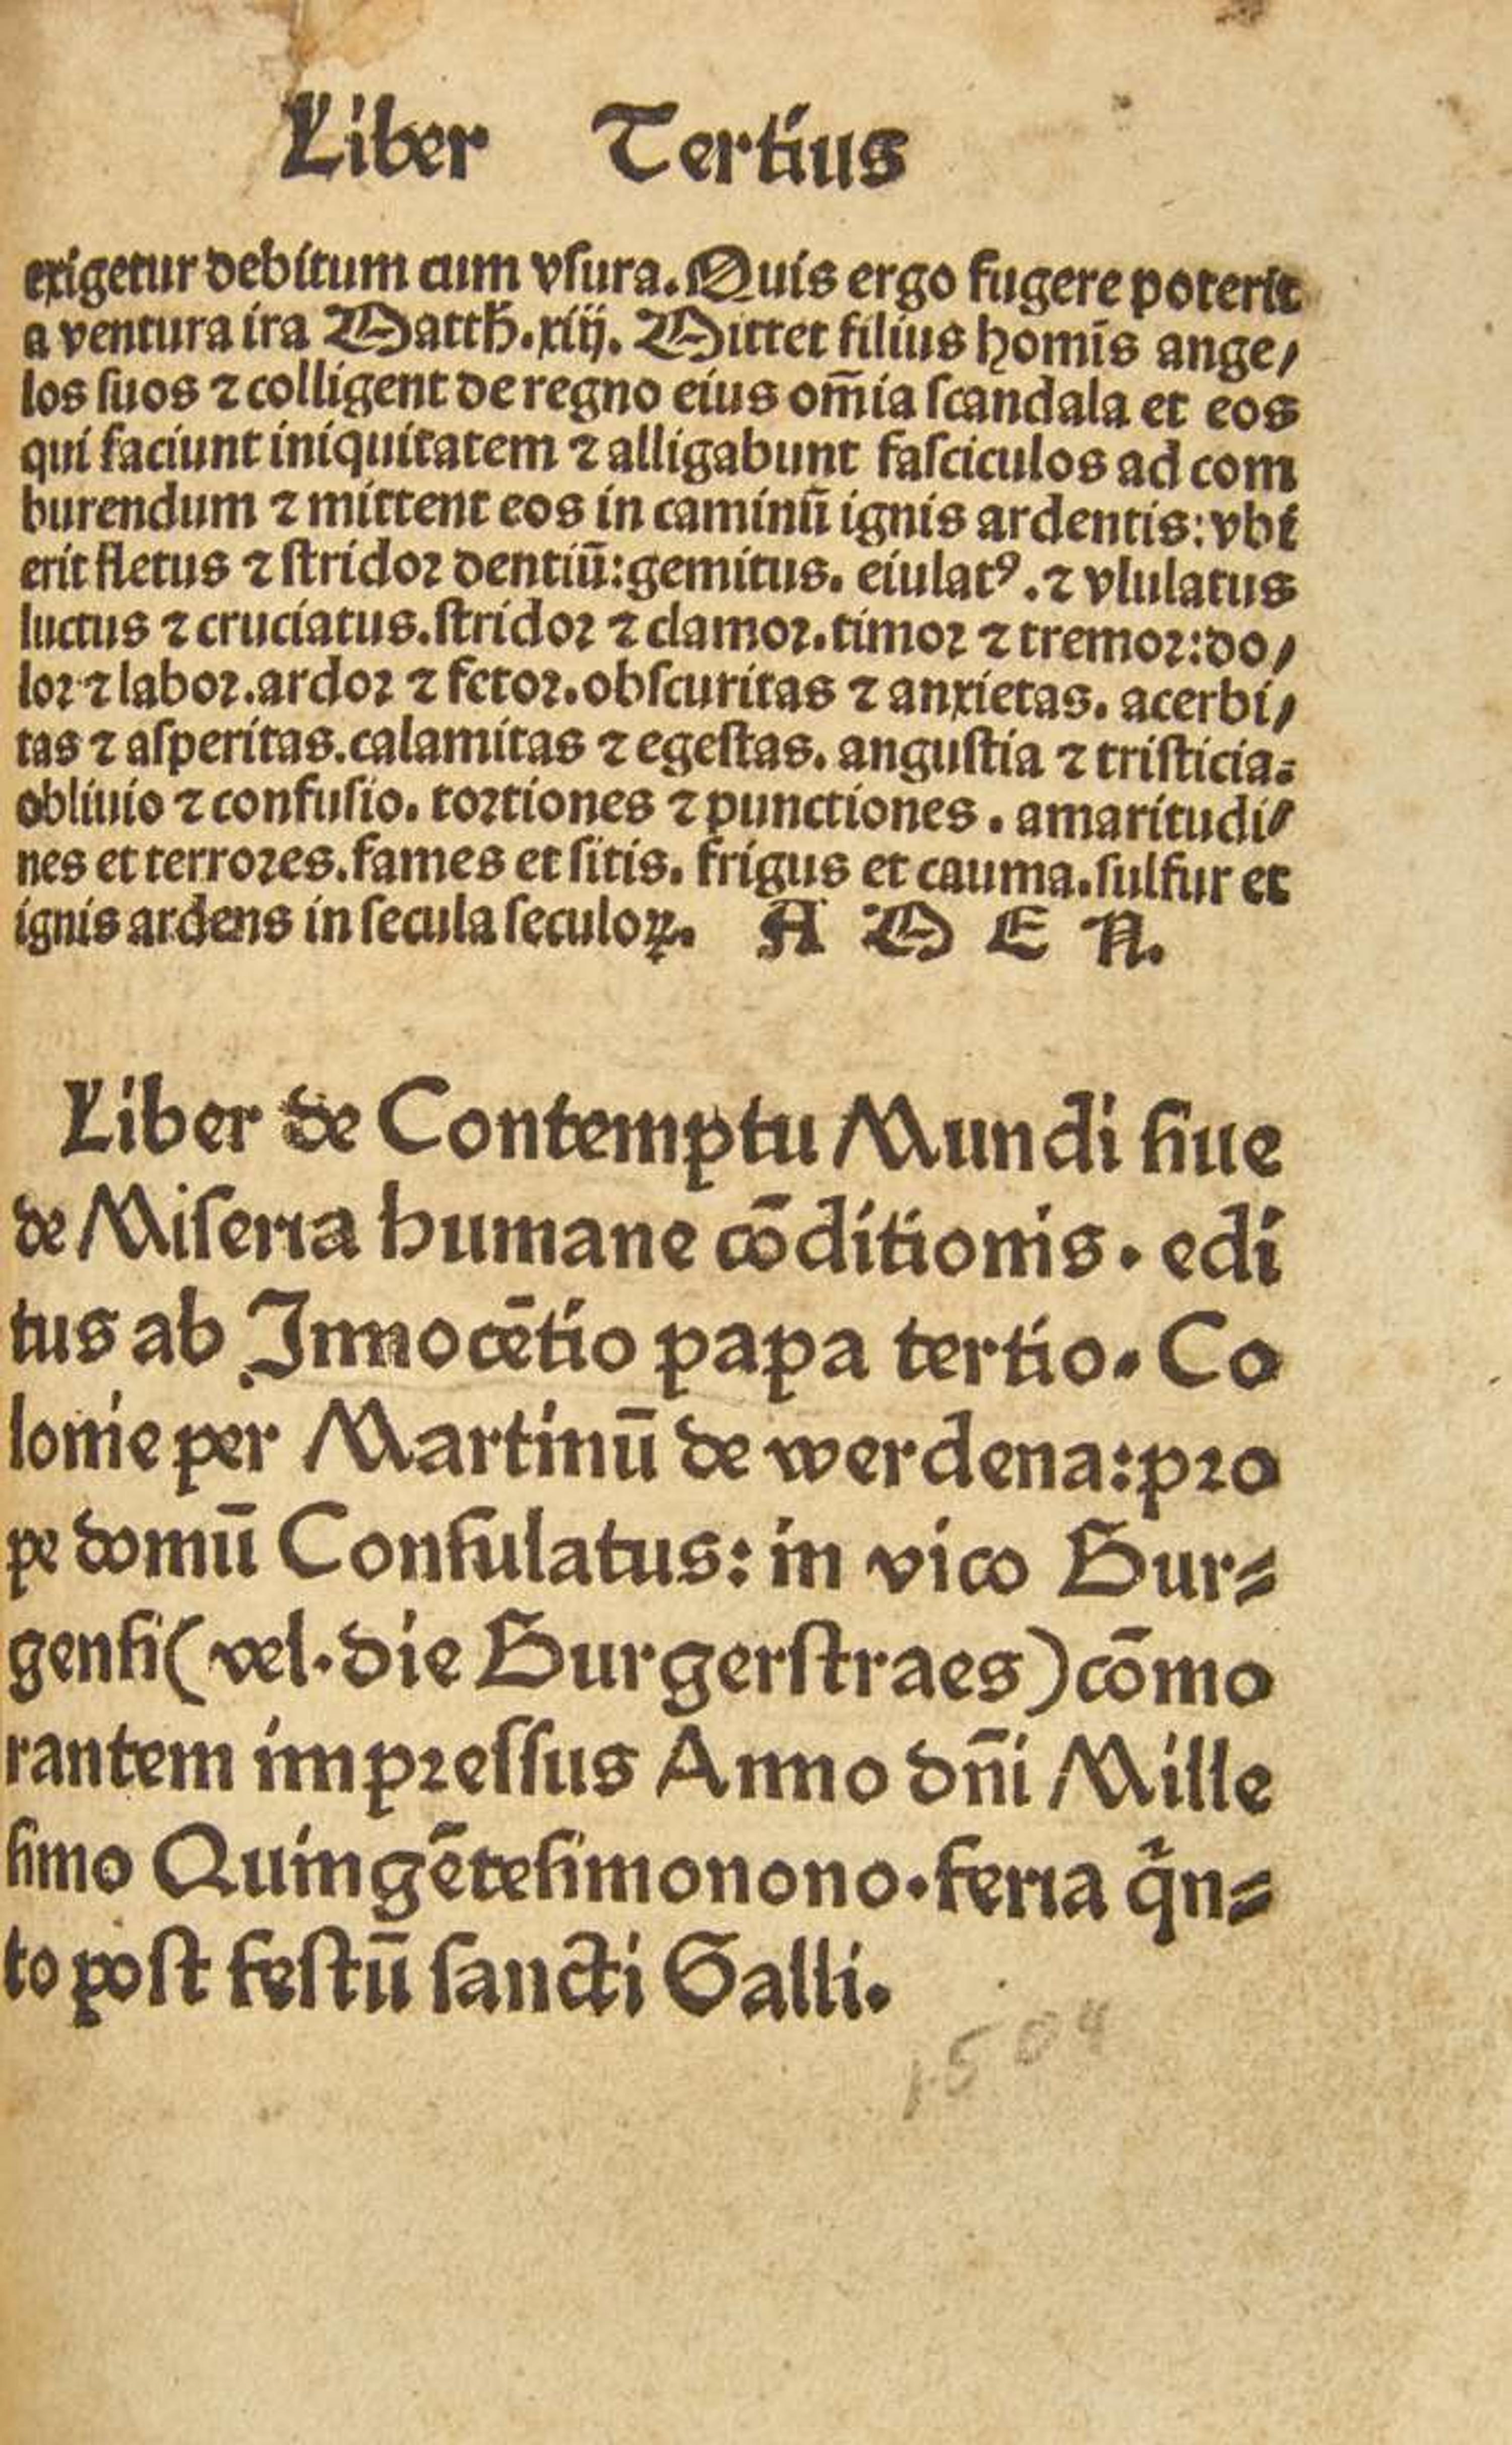 Liber Tertius
exigetur debitum cum vſura. Quis ergo fugere poterit
a ventura ira Matth̄. xiij. Mittet filius homīs ange⸗
los ſuos ⁊ colligent de regno eius om̄ia ſcandala et eos
qui faciunt iniquitatem ⁊ alligabunt faſciculos ad com
burendum ⁊ mittent eos in caminū ignis ardentis: vbi
erit fletus ⁊ ſtridoꝛ dentiū: gemitus. eiulatꝰ. ⁊ vlulatus
luctus ⁊ cruciatus. ſtridoꝛ ⁊ clamoꝛ. timoꝛ ⁊ tremoꝛ: do⸗
loꝛ ⁊ laboꝛ. ardoꝛ ⁊ fetoꝛ. obſcuritas ⁊ anxietas. acerbi⸗
tas ⁊ aſperitas. calamitas ⁊ egeſtas. anguſtia ⁊ triſticia.
obliuio ⁊ confuſio. toꝛtiones ⁊ punctiones. amaritudi⸗
nes et terroꝛes. fames et ſitis. frigus et cauma. ſulfur et
ignis ardens in ſecula ſeculoꝝ. A M E N.
Liber de Contemptu Mundi ſiue
de Miſeria humane cōditionis. edi
tus ab Innocētio papa tertio. Co
lonie per Martinū de werdena: pꝛo
pe domū Conſulatus: in vico Bur⸗
genſi (vel. die Burgerſtraes) cōmo
rantem impꝛeſſus Anno dn̄i Mille
ſimo Quingēteſimonono. feria qͥn⸗
to poſt feſtū ſancti Galli.
1509